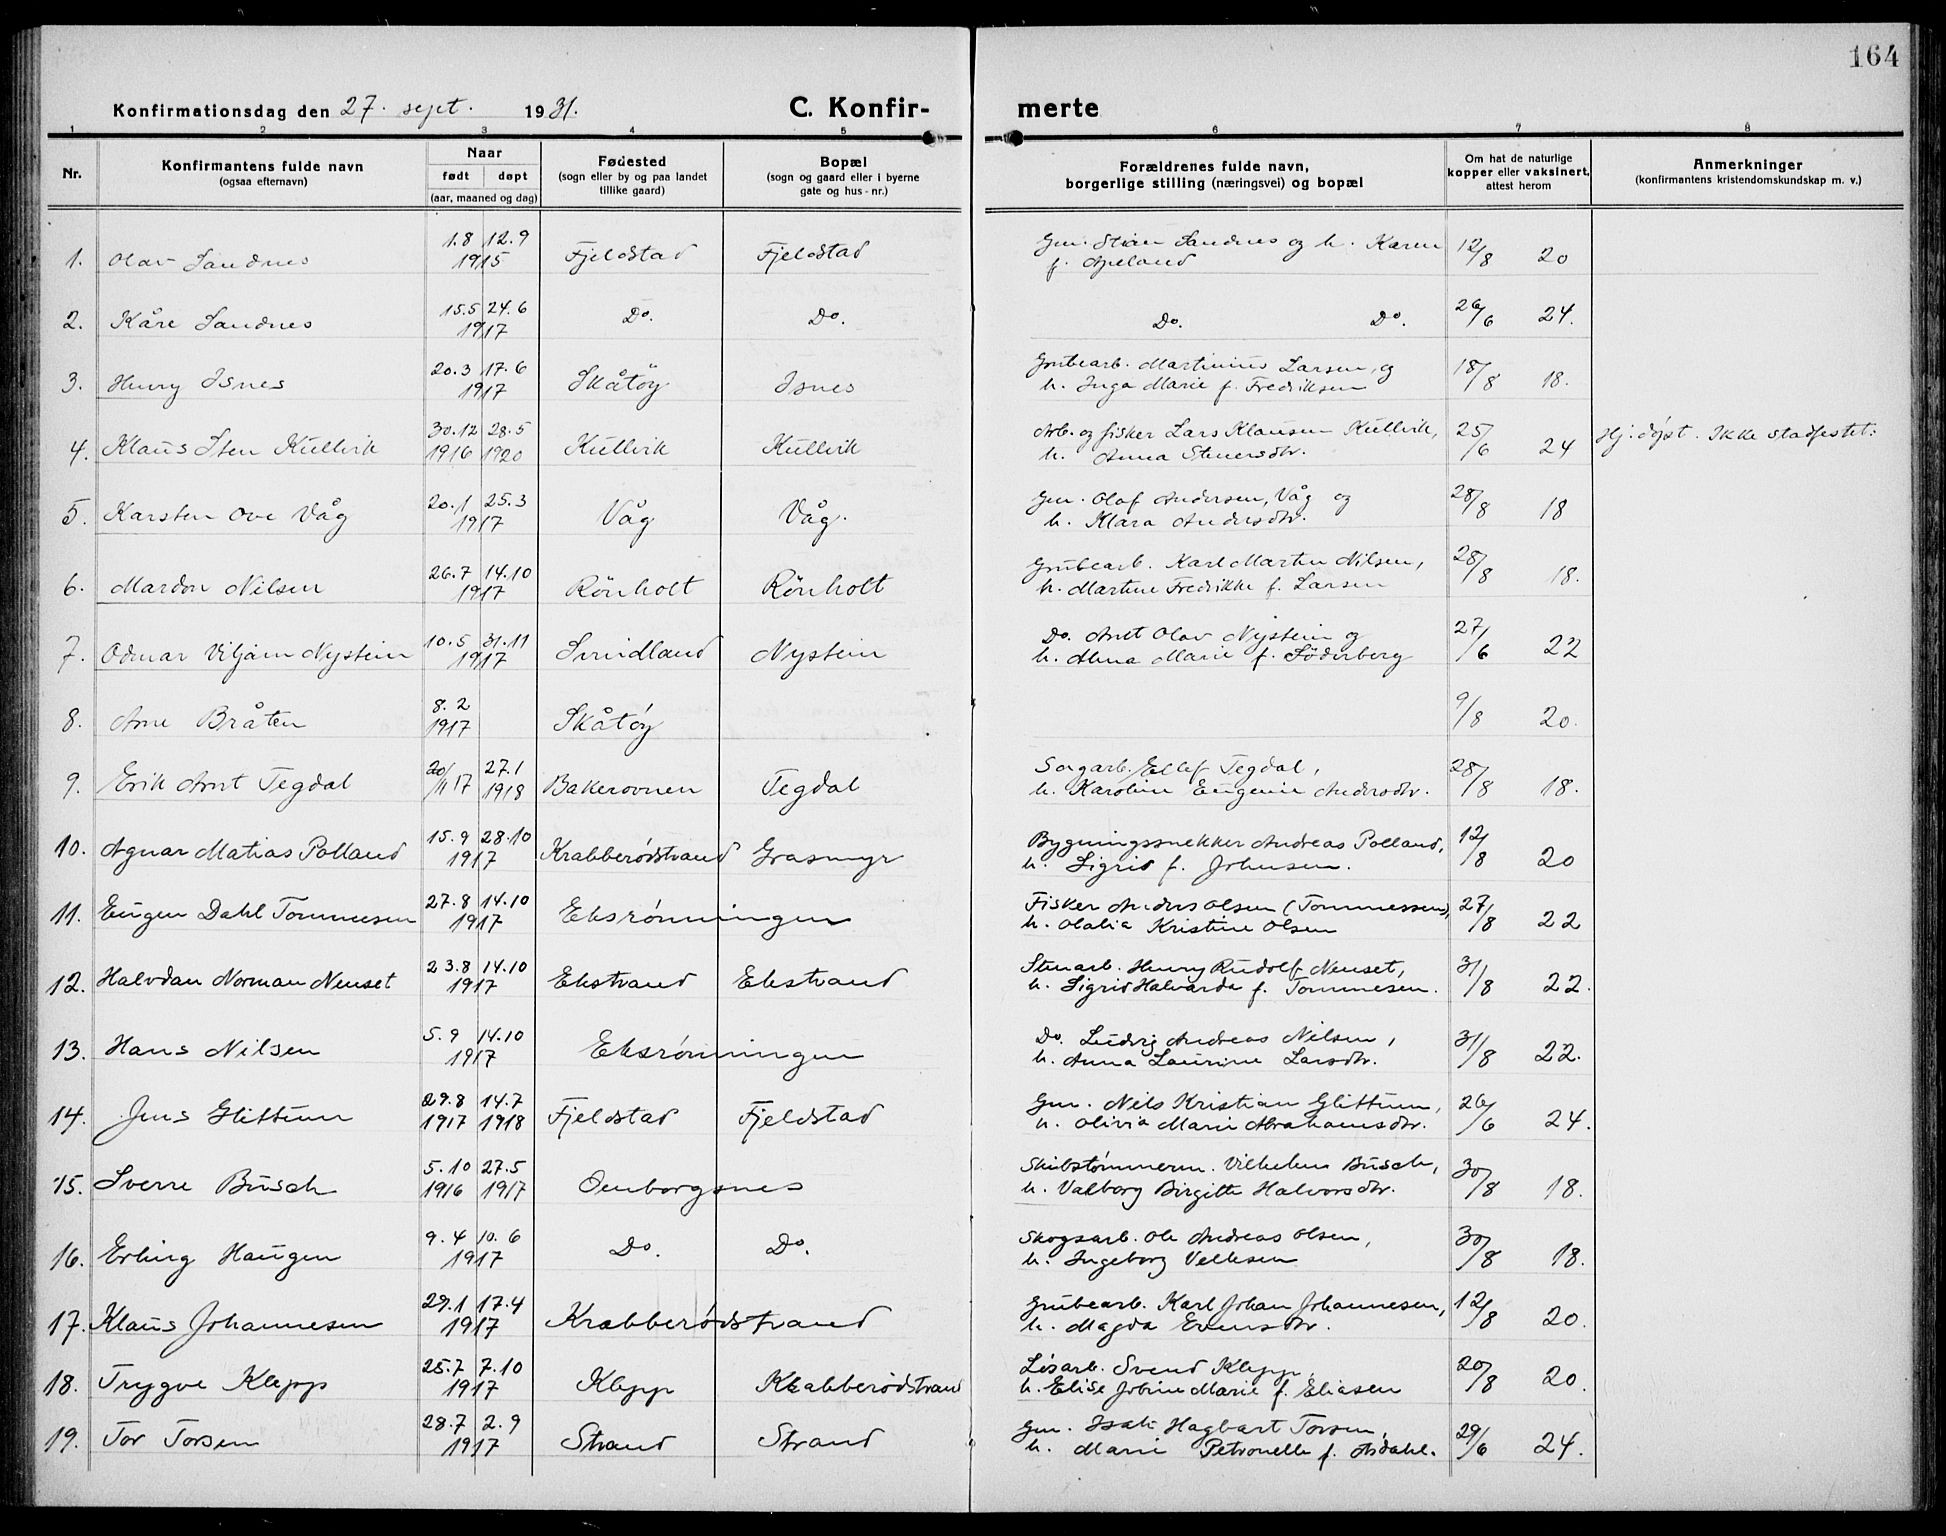 164
Konfirmationsdag den 27. sept. 1931. C. Konfirmerte
1 2 3 4 5 6 7 8
Nr. Konfirmantens fulde navn (ogsaa efternavn) Naar født døpt (aar, maaned og dag) Fødested (sogn eller by og paa landet tillike gaard) Bopæl (sogn og gaard eller i byerne gate og hus-nr.) Forældrenes fulde navn, borgerlige stilling (næringsvei) og bopæl Om hat de naturlige kopper eller vaksinert, attest herom Anmerkninger (konfirmantens kristendomskundskap m. v.)
1. Olav Sandnes 1.8 12.9 1915 Fjeldstad Fjeldstad Gm. Stian Sandnes og h. Karen f. Apeland 12/8 20
2. Kåre Sandnes 15.5 24.6 1917 Do. Do. Do. Do. 26/6 24.
3. Henry Isnes 20.3 17.6 1917 Skåtøy Isnes Grubearb. Martinius Larsen, og h. Inga Marie f. Fredriksen 18/8 18.
4. Klaus Sten Kullvik 30.12 1916 28.5 1920 Kullvik Kullvik Arb. og fisker Lars Klausen Kullvik, h. Anna Stenersdtr. 25/6 24 Hj. døpt. Ikke stadfestet.
5. Karsten Ove Våg 20.1 25.3 1917 Våg Våg. Gm. Olaf Andersen, Våg og h. Klara Andersdtr. 28/8 18
6. Mardon Nilsen 26.7 14.10 1917 Rönholt Rönholt Grubearb. Karl Martin Nilsen, h. Martine Fredrikke f. Larsen 28/8 18.
7. Odmar Viljam Nystein 10.5 31.11 1917 Svindland Nystein Do. Arnt Olav Nystein og h. Alma Marie f. Söderberg 27/6 22
8. Arne Bråten 8.2 1917 Skåtøy 9/8 20.
9. Erik Arnt Tegdal 20/11 17 27.1 1918 Bakerovnen Tegdal Sagarb. Ellef Tegdal, h. Karoline Eugenie Andersdtr. 28/8 18.
10. Agnar Matias Polland 15.9 28.10 1917 Krabberødstrand Grasmyr Bygningssnekker Andreas Polland, h. Sigrid f. Johnsen. 12/8 20
11. Eugen Dahl Tommesen 27.8 14.10 1917 Eksrønningen Fisker Anders Olsen (Tommessen), h. Olalia Kristine Olsen 27/8 22
12. Halvdan Norman Neuset 23.8 14.10 1917 Ekstrand Ekstrand Stenarb. Henry Rudolf Neuset, h. Sigrid Halvarda f. Tommesen. 31/8 22.
13. Hans Nilsen 5.9 14.10 1917 Eksrønningen Do. Ludvig Andreas Nilsen, h. Anna Laurine Larsdtr. 31/8 22.
14. Jens Glittum 29.8 1917 14.7 1918 Fjeldstad Fjeldstad Gm. Nils Kristian Glittum, h. Olivia Marie Abrahamsdtr. 26/6 24.
15. Sverre Busch 5.10 1916 27.5 1917 Ormborgsnes Skibstømmerm. Vilhelm Busch, h. Valborg Birgitte Halvorsdtr. 30/8 18.
16. Erling Haugen 9.4 10.6 1917 Do. Do. Skogsarb. Ole Andreas Olsen, h. Ingeborg Vellesen 30/8 18.
17. Klaus Johannesen 29.1 17.4 1917 Krabberødstrand Grubearb. Karl Johan Johannesen, h. Magda Evensdtr. 12/8 20.
18. Trygve Klepp 25.7 7.10 1917 Klepp Krabberødstrand Løsarb. Svend Klepp, h. Elise Jobine Marie f. Eliasen 20/8 20.
19. Tor Torsen 28.7 2.9 1917 Strand Strand Gm. Isak Hagbart Torsen, h. Marie Petronelle f. Asdahl. 29/6 24.